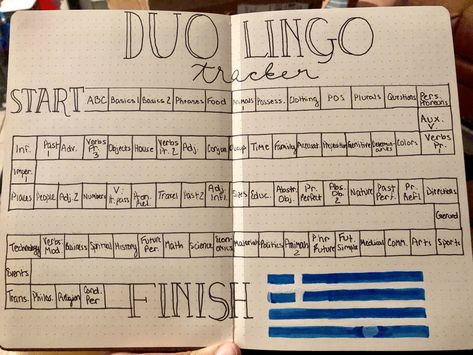 DUO LINGO
tracker
START ABC Basics 1 Basics 2 Phrases Food Animals 1 Possess. Clothing POS Plurals Questions Pers. Pronouns
Aux. V
Inf. 1 Past 1 Adv. Verbs Pr. 3 Objects House Verbs Pr. 2 Adj. Conjun Days Time Family 2 Preposition Colors Verbs Pr. 1
Imper. 1
Places People Adj. 2 Numbers V: Pr. pass Pron. Rel. Travel Past 2 Adj. Infl. Sizes Educ. Abstr. Obj. Pr. Perfect Abs. Ob. 2 Nature Past Perf. Pr. Refl Directions
Gerund
Technology Verbs: Mod. Business Spiritual History Future Per. Math Science Economics Materials Politics Animals 2 Phr Future Fut. Simple Medical Comm. Arts Sports
Events
Trans. Philos. Religion Cond. Per FINISH